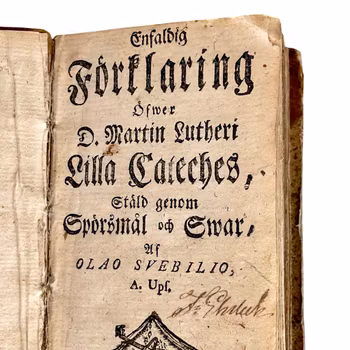 Enfaldig
Förklaring
Öfwer
D. Martin Lutheri
Lilla Cateches,
Stäld genom
Spörsmål och Swar,
Af
OLAO SVEBILIO,
A. Ups.